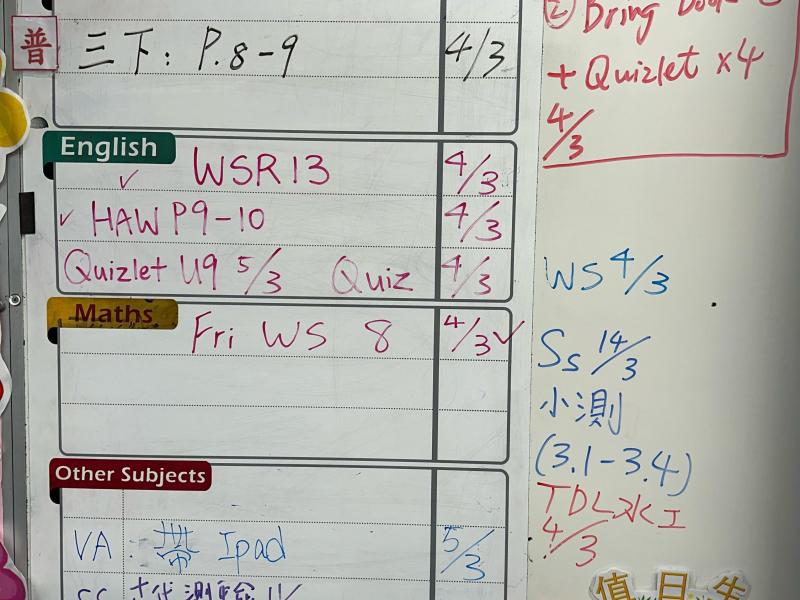 普 三下: P.8-9 4/3
② Bring
+ Quizlet x4
4/3
English
WSR13 4/3
✓
✓ HAW P9-10 4/3
Quizlet U9 5/3 Quiz 4/3
Maths
Fri WS 8 4/3 ✓
Other Subjects
VA: 帶 Ipad 5/3
WS 4/3
Ss 14/3
小測
(3.1-3.4)
TDL水工
4/3
值日生